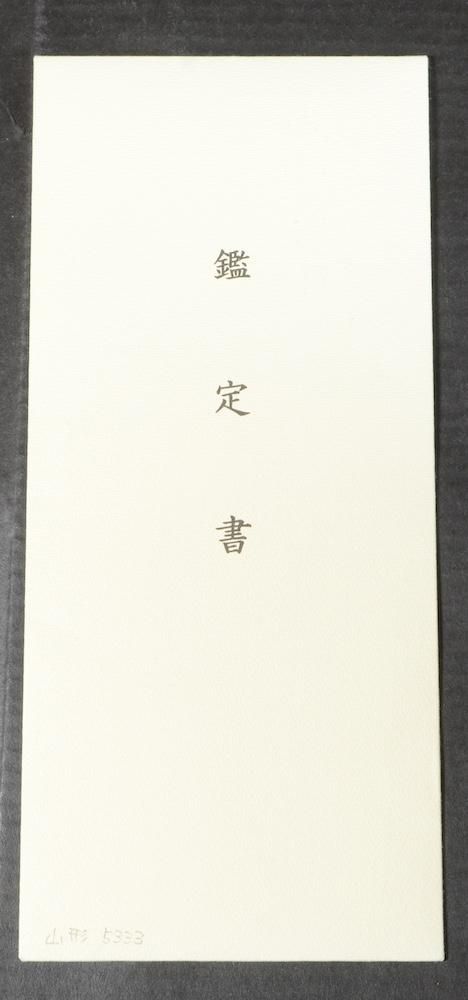 鑑定書
山形 5333